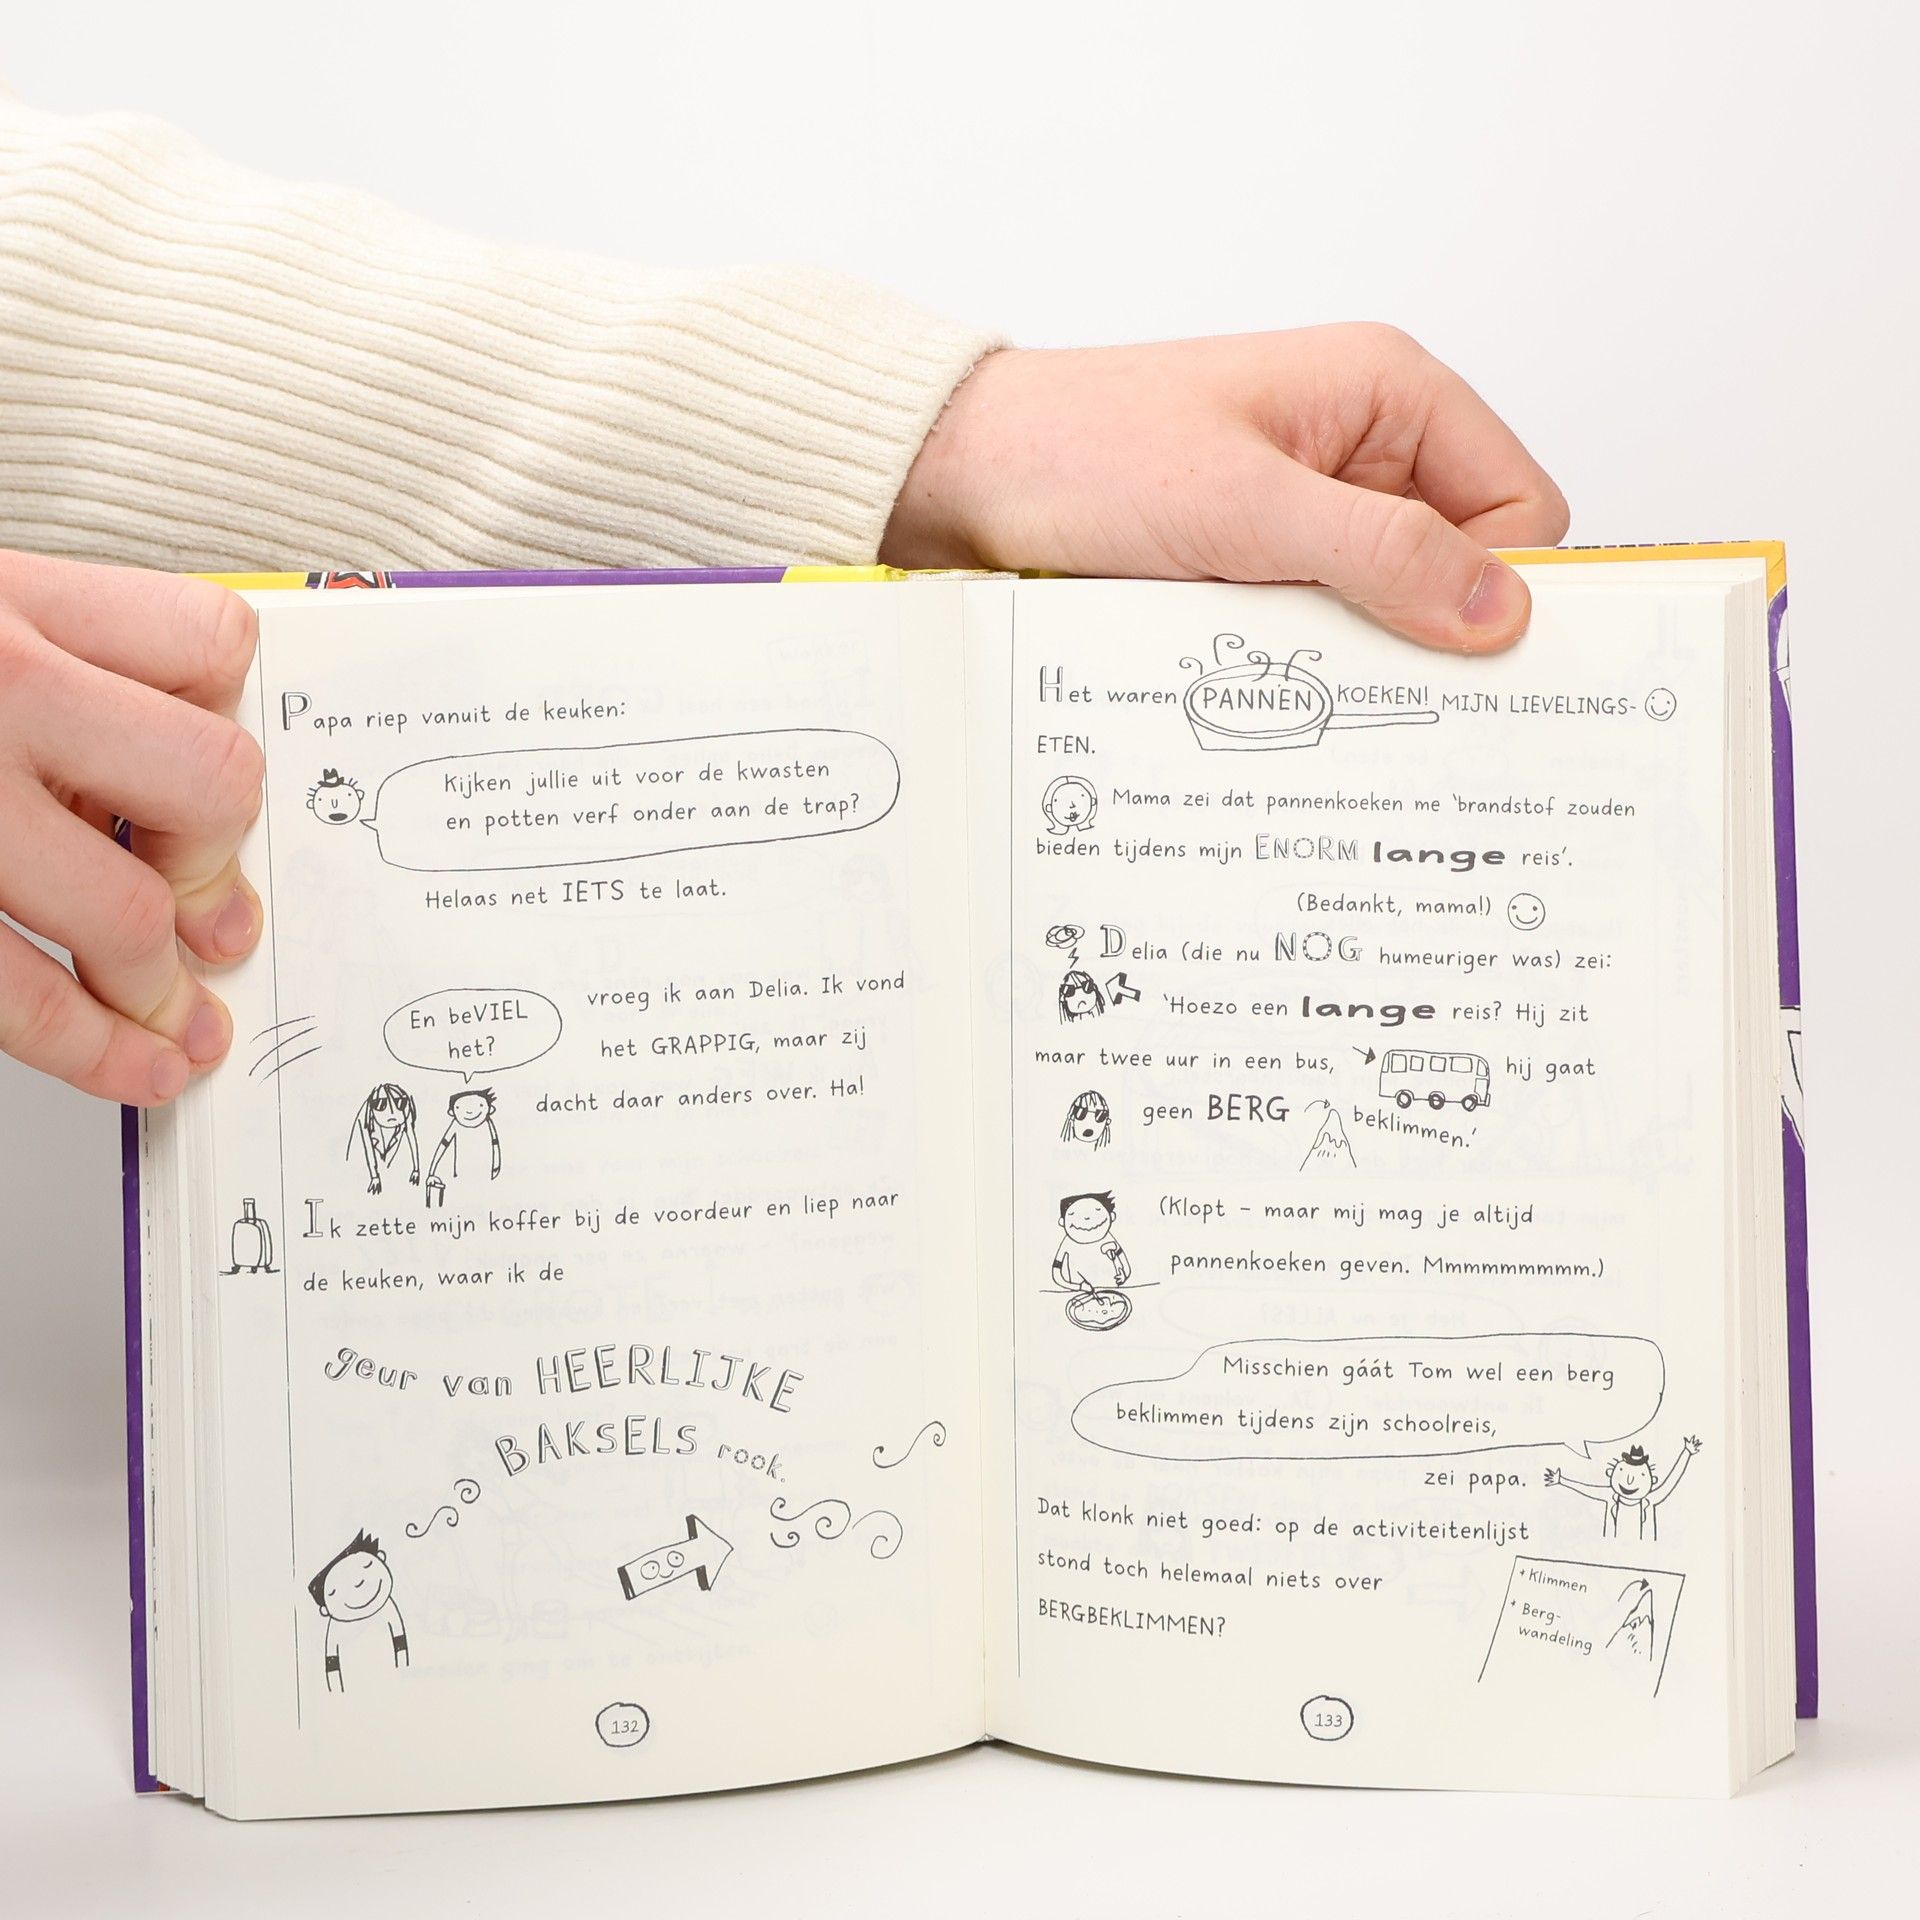 Papa riep vanuit de keuken:
Kijken jullie uit voor de kwasten
en potten verf onder aan de trap?
Helaas net IETS te laat.
En beVIEL
het?
vroeg ik aan Delia. Ik vond
het GRAPPIG, maar zij
dacht daar anders over. Ha!
Ik zette mijn koffer bij de voordeur en liep naar
de keuken, waar ik de
geur van HEERLIJKE
BAKSELS rook.
132
Het waren PANNEN KOEKEN! MIJN LIEVELINGS-
ETEN.
Mama zei dat pannenkoeken me ‘brandstof zouden
bieden tijdens mijn ENORM lange reis’.
(Bedankt, mama!)
Delia (die nu NOG humeuriger was) zei:
‘Hoezo een lange reis? Hij zit
maar twee uur in een bus, hij gaat
geen BERG beklimmen.’
(Klopt – maar mij mag je altijd
pannenkoeken geven. Mmmmmmmmm.)
Misschien gáát Tom wel een berg
beklimmen tijdens zijn schoolreis,
zei papa.
Dat klonk niet goed: op de activiteitenlijst
stond toch helemaal niets over
BERGBEKLIMMEN?
+ Klimmen
+ Berg-
wandeling
133